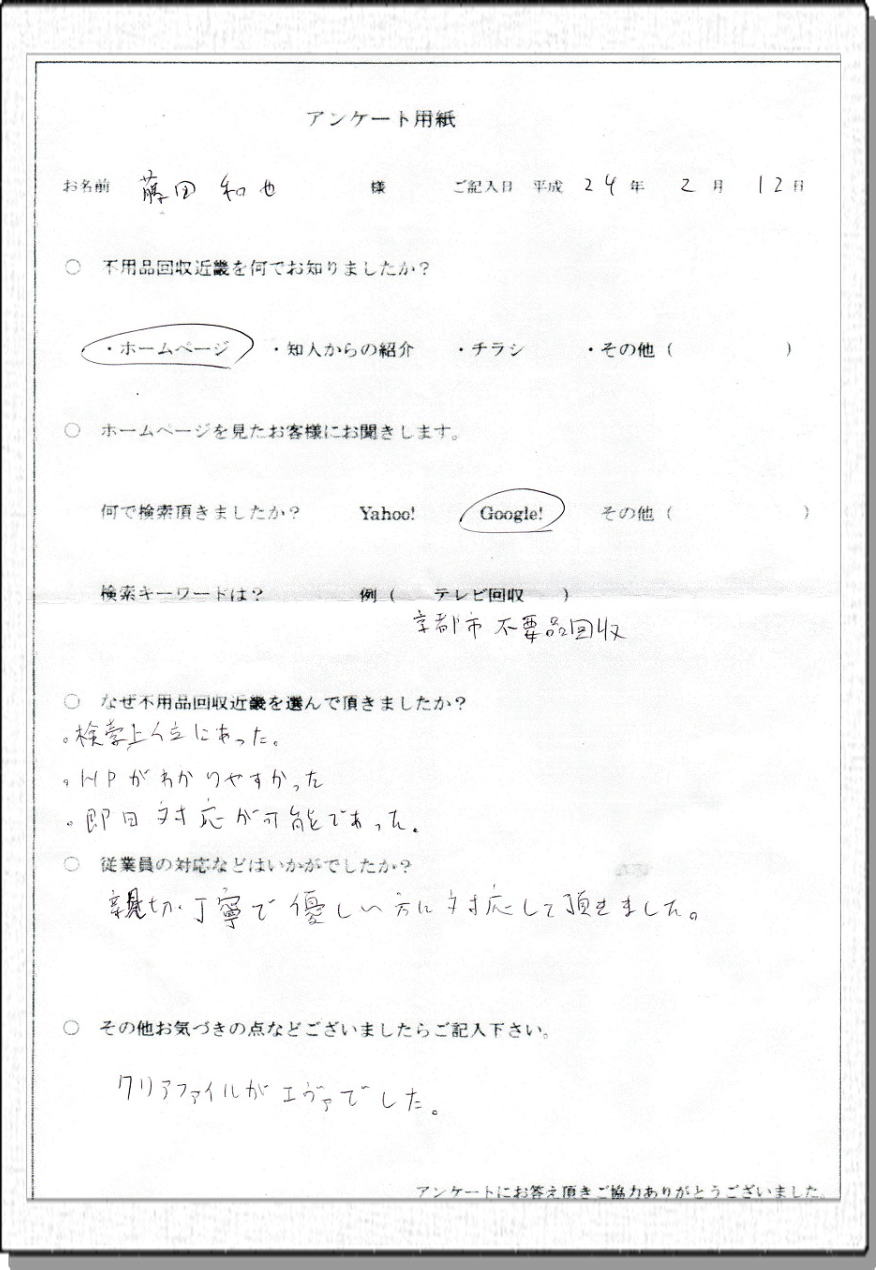 アンケート用紙
お名前 藤田 和也 様 ご記入日 平成 24 年 2 月 12 日
○ 不用品回収近畿を何でお知りましたか？
・ホームページ ・知人からの紹介 ・チラシ ・その他（ ）
○ ホームページを見たお客様にお聞きします。
何で検索頂きましたか？ Yahoo! Google! その他（ ）
検索キーワードは？ 例（ テレビ回収 ）
京都市 不要品回収
○ なぜ不用品回収近畿を選んで頂きましたか？
。検索上位にあった。
。HPがわかりやすかった
。即日対応が可能であった。
○ 従業員の対応などはいかがでしたか？
親切、丁寧で優しい方に対応して頂きました。
○ その他お気づきの点などございましたらご記入下さい。
クリアファイルがエヴァでした。
アンケートにお答え頂きご協力ありがとうございました。